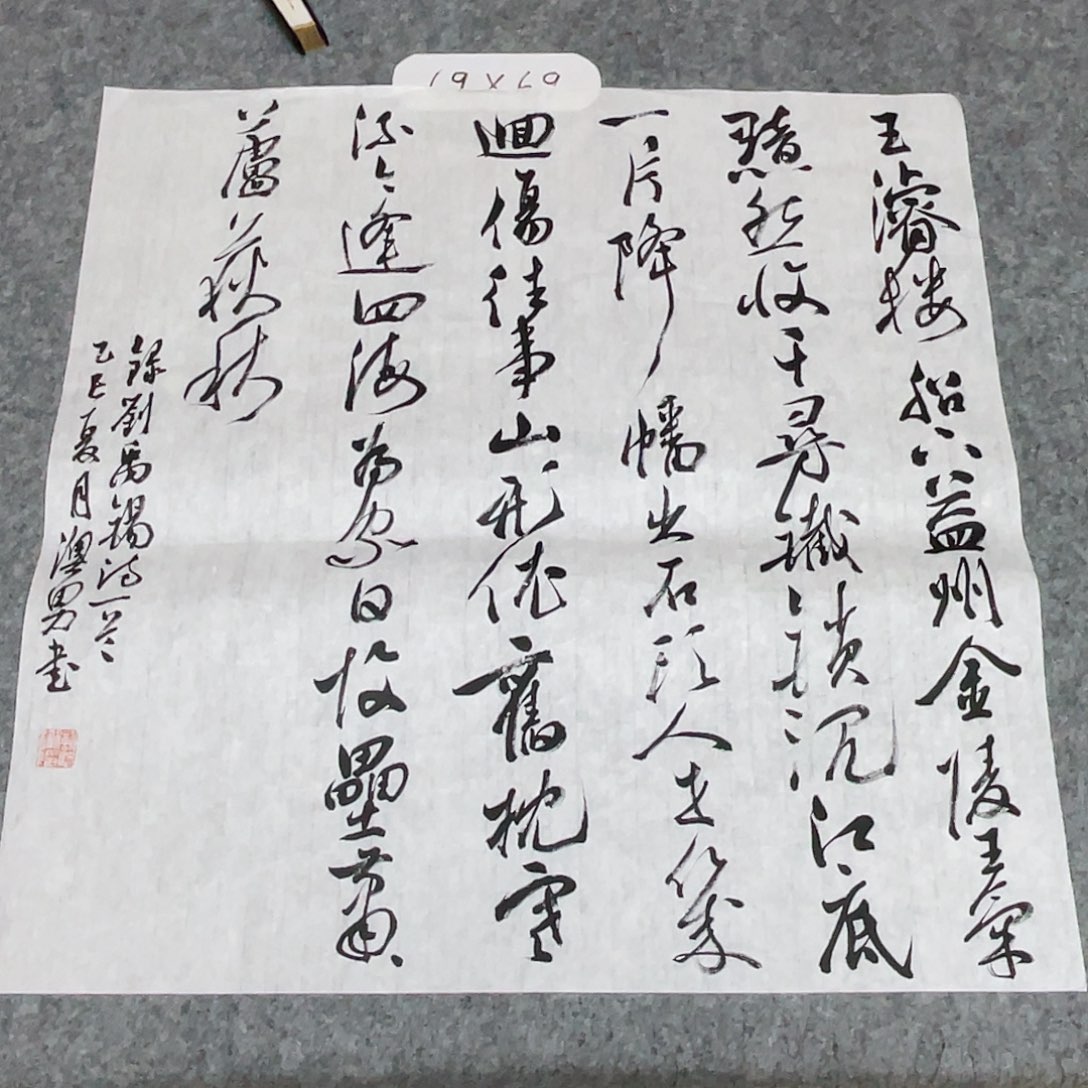 王濬楼船下益州金陵王氣
黯然收千尋鐵鎖沉江底
一片降幡出石頭人世幾
迴傷往事山形依舊枕寒
流今逢四海為家日故壘蕭々
蘆荻秋
錄劉禹錫詩一首
乙巳夏月澳男书